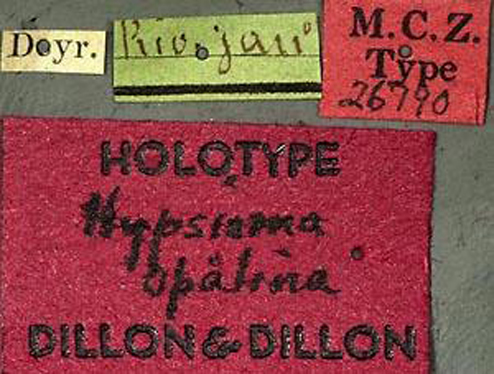 Deyr.
Rio. jan
M.C.Z.
Type
26790
HOLOTYPE
Hypsioma
opalina
DILLON & DILLON